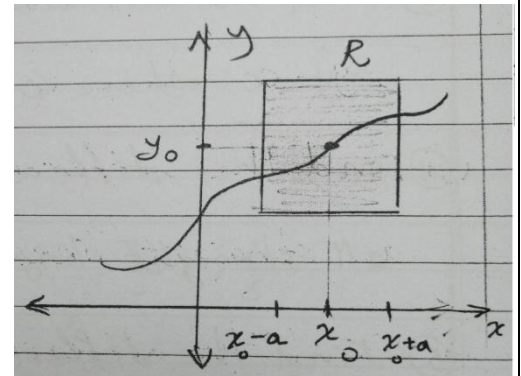 y
R
y₀
x₀-a x₀ x₀+a x